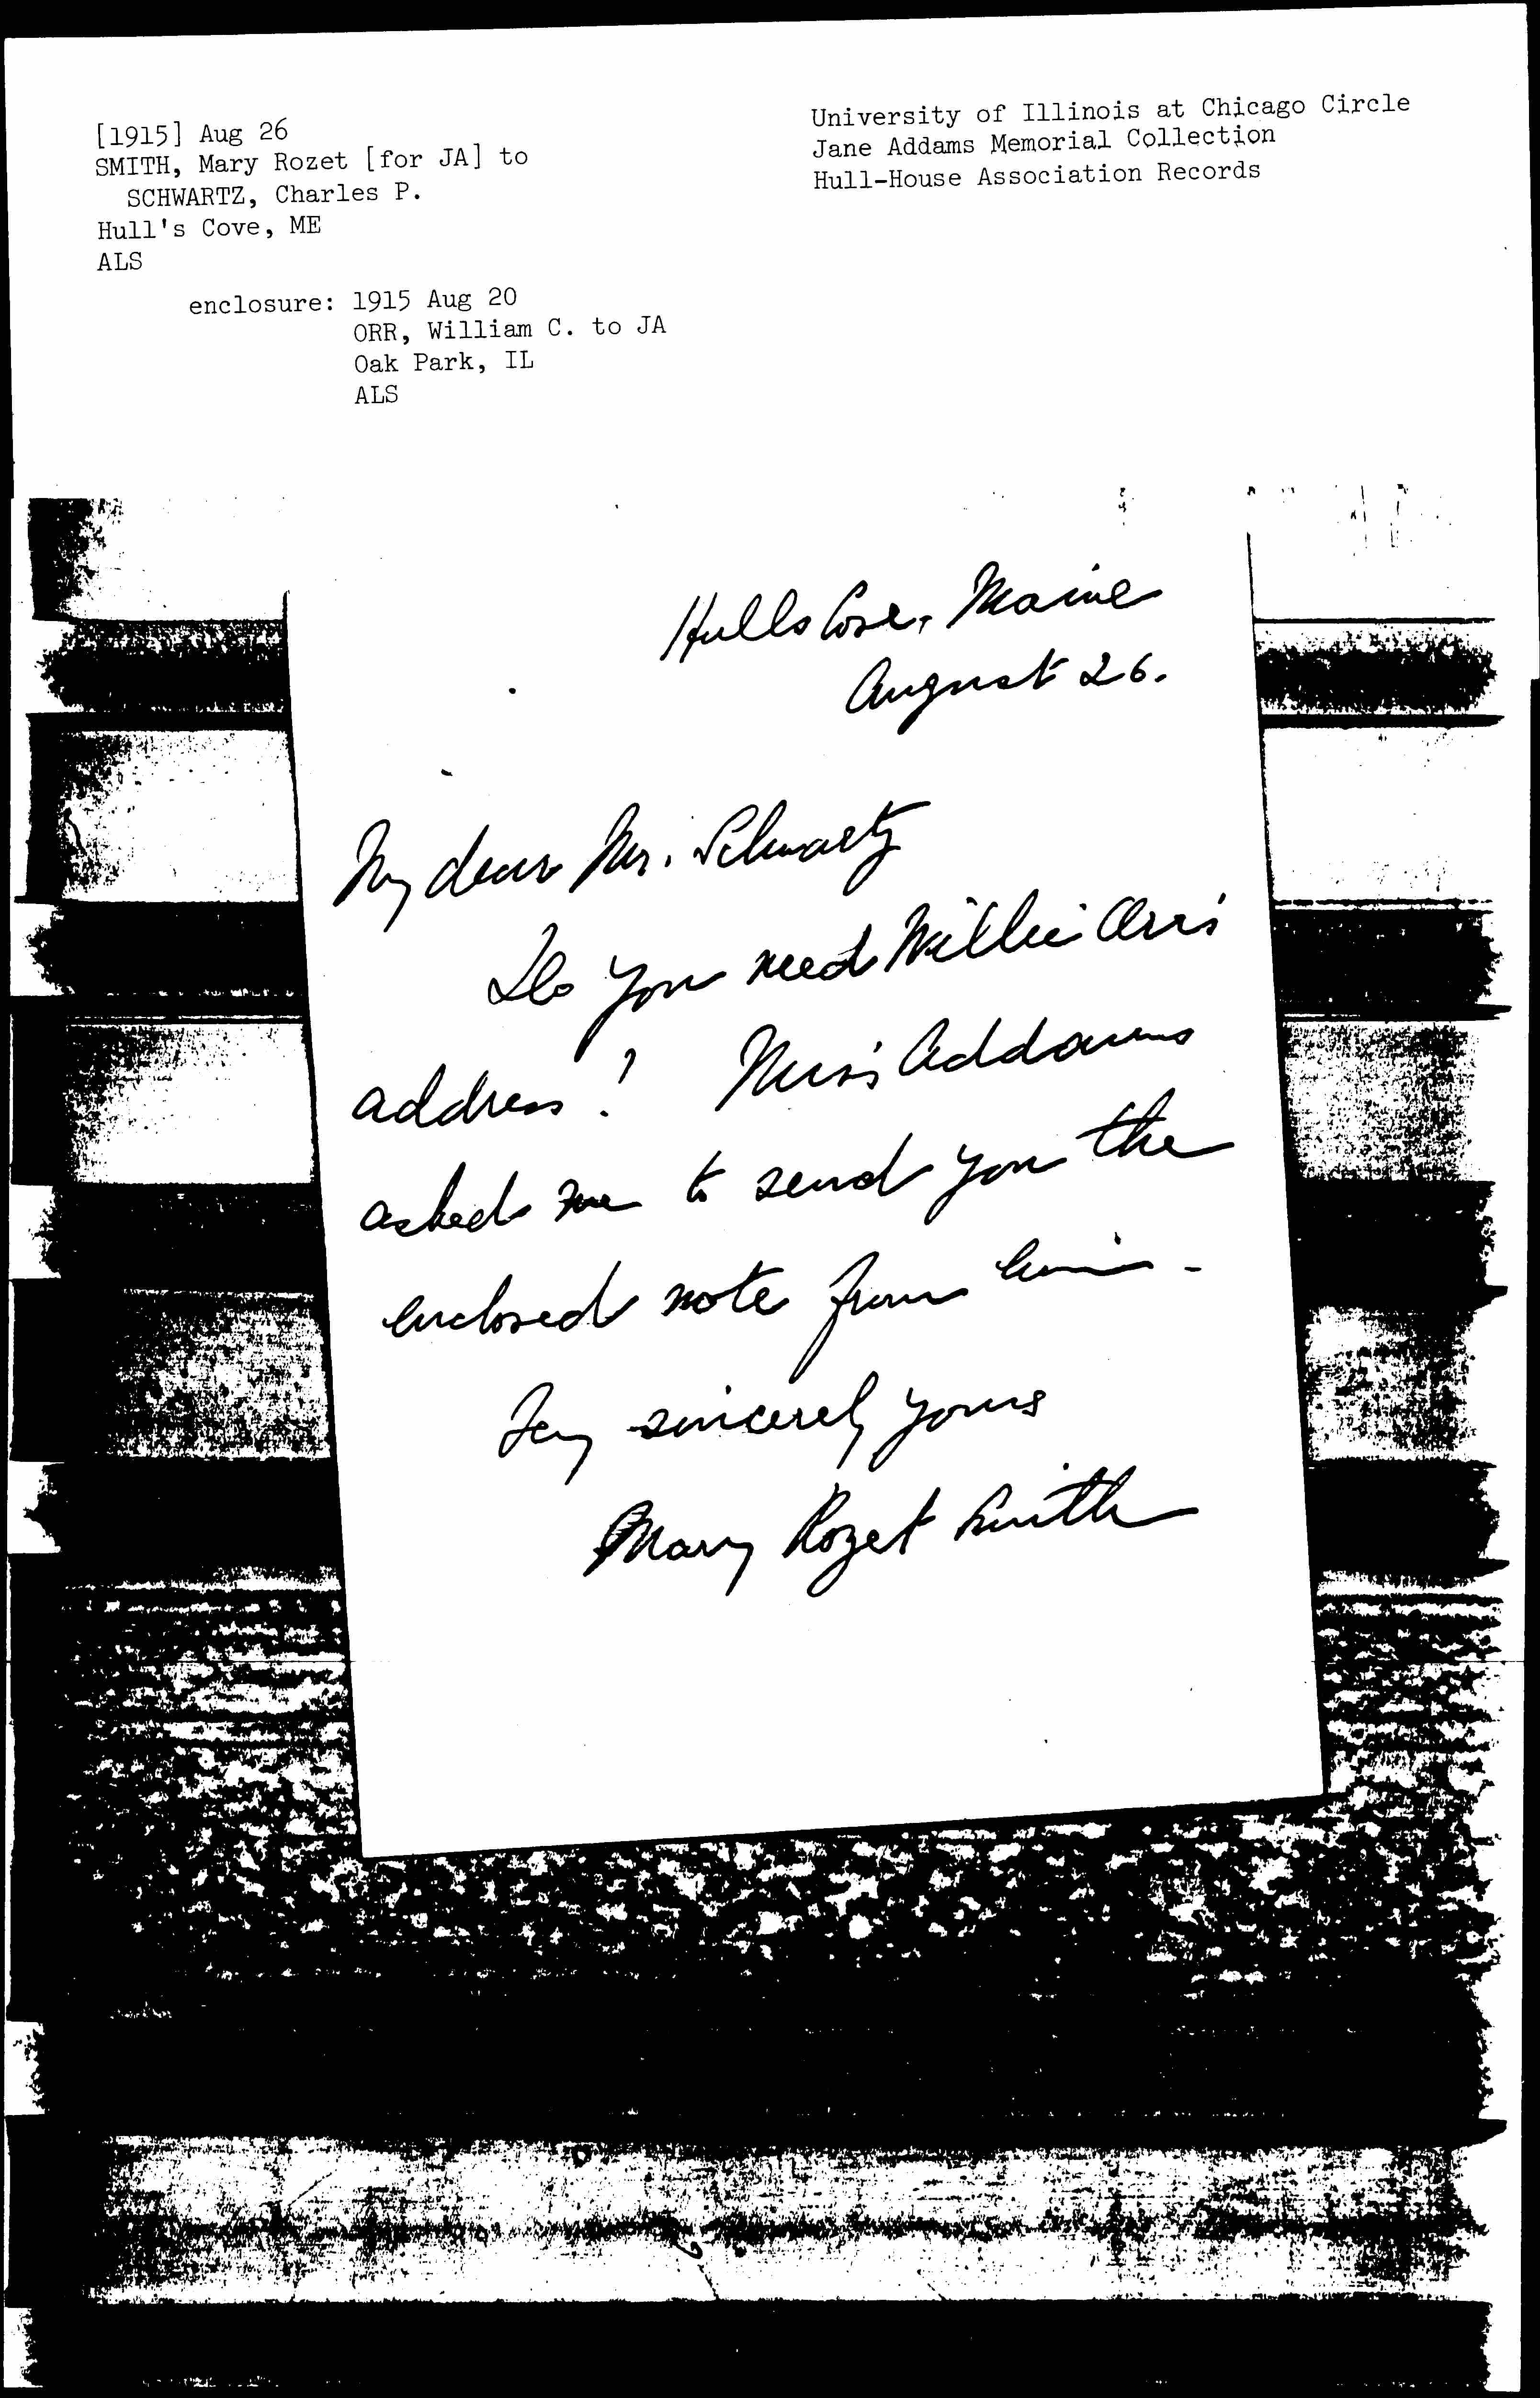 [1915] Aug 26
SMITH, Mary Rozet [for JA] to
SCHWARTZ, Charles P.
Hull's Cove, ME
ALS
enclosure: 1915 Aug 20
ORR, William C. to JA
Oak Park, IL
ALS
University of Illinois at Chicago Circle
Jane Addams Memorial Collection
Hull-House Association Records
Hulls Cove, Maine
August 26.
My dear Mr. Schwartz
Do you need Willie Orr's
address? Miss Addams
asked me to send you the
enclosed note from him -
Very sincerely yours
Mary Rozet Smith